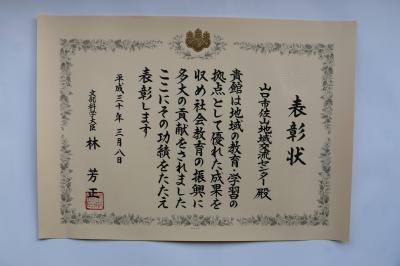 表彰状
山口市佐山地域交流センター殿
貴館は地域の教育・学習の
拠点として優れた成果を
収め社会教育の振興に
多大の貢献をされました
ここにその功績をたたえ
表彰します
平成三十年三月八日
文部科学大臣 林芳正